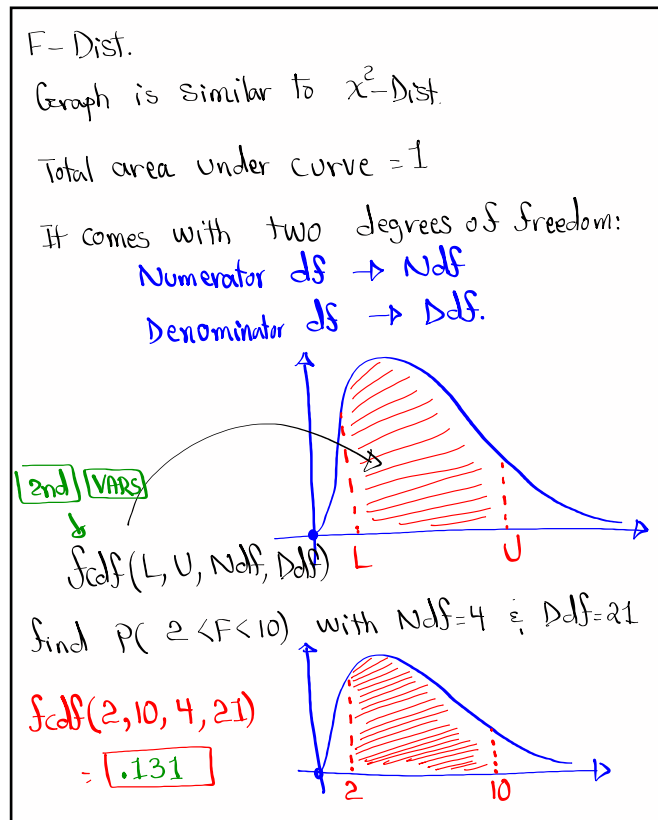 F-Dist.
Graph is similar to x²-Dist.
Total area under curve = 1
It comes with two degrees of freedom:
Numerator df → Ndf
Denominator df → Ddf.
2nd VARS
fcdf(L, U, Ndf, Ddf)
L U
find P( 2 <F< 10) with Ndf=4 & Ddf=21
fcdf(2,10,4,21)
= .131
2 10